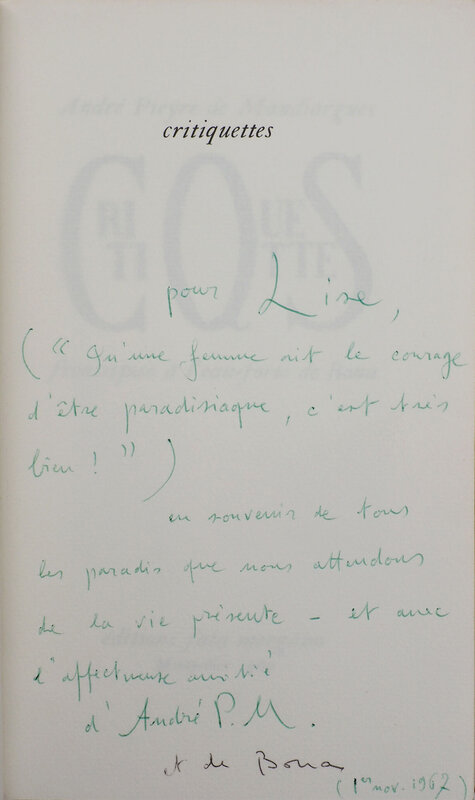 critiquettes
pour Lise,
(“Qu'une femme ait le courage
d'être paradisiaque, c'est très
bien !”)
en souvenir de tous
les paradis que nous attendons
de la vie présente – et avec
l'affectueuse amitié
d'André P. M.
et de Bona
(1er nov. 1967)